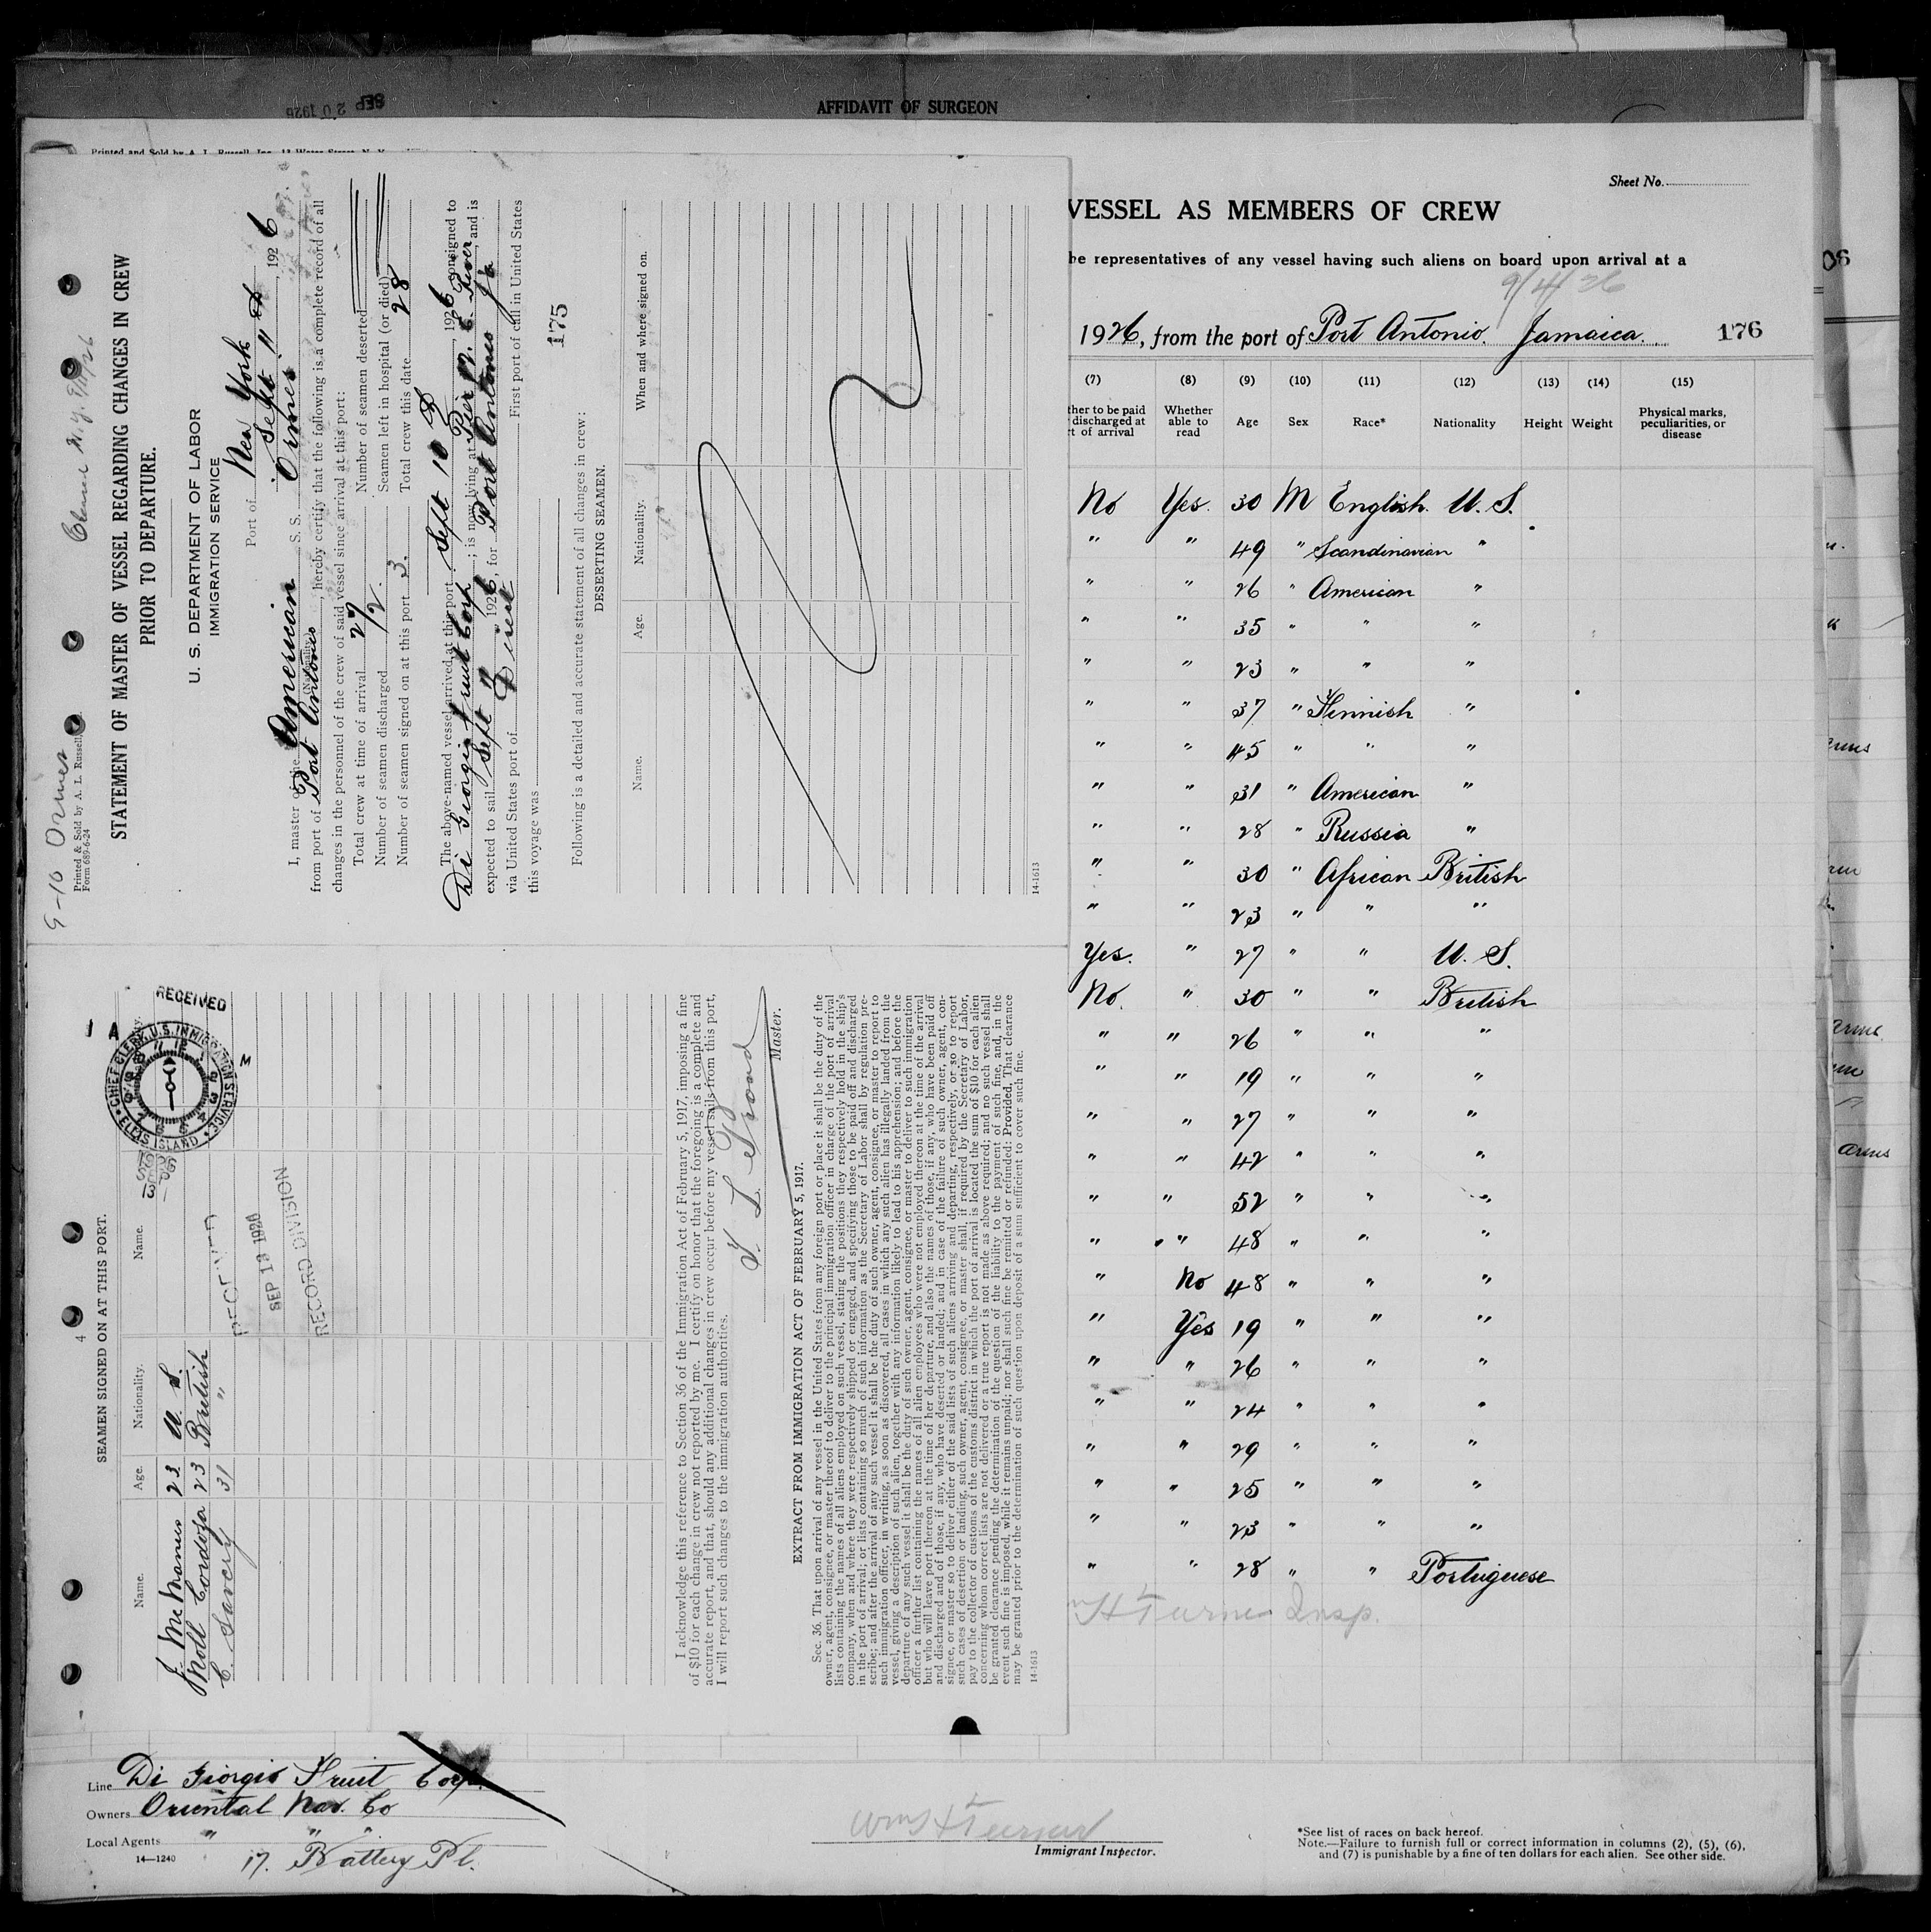 AFFIDAVIT OF SURGEON
SEP 20 1926
Sheet No.
VESSEL AS MEMBERS OF CREW
be representatives of any vessel having such aliens on board upon arrival at a
9/4/26
1926, from the port of Port Antonio. Jamaica. 176
(7) (8) (9) (10) (11) (12) (13) (14) (15)
ther to be paid discharged at rt of arrival Whether able to read Age Sex Race* Nationality Height Weight Physical marks, peculiarities, or disease
No Yes. 30 M English. U. S.
" " 49 " Scandinavian "
" " 26 " American "
" " 35 " " "
" " 23 " " "
" " 37 " Finnish "
" " 45 " " "
" " 31 " American "
" " 28 " Russia "
" " 30 " African British
" " 23 " " "
Yes. " 27 " " U. S.
No. " 30 " " British
" " 26 " " "
" " 19 " " "
" " 27 " " "
" " 42 " " "
" " 52 " " "
" " 48 " " "
" No 48 " " "
" Yes 19 " " "
" " 26 " " "
" " 24 " " "
" " 29 " " "
" " 25 " " "
" " 23 " " "
" " 28 " " Portuguese
H Turner Insp.
9-10 Ormes
Printed & Sold by A. L. Russell,
Form 689-6-24
STATEMENT OF MASTER OF VESSEL REGARDING CHANGES IN CREW
PRIOR TO DEPARTURE.
U. S. DEPARTMENT OF LABOR
IMMIGRATION SERVICE
Port of New York
Sept 11th, 1926
I, master of the American S. S. Ormes
(Nationality)
from port of Port Antonio hereby certify that the following is a complete record of all
changes in the personnel of the crew of said vessel since arrival at this port:
Total crew at time of arrival 27 Number of seamen deserted
Number of seamen discharged 2. Seamen left in hospital (or died)
Number of seamen signed on at this port 3. Total crew this date 28
The above-named vessel arrived at this port Sept 10th 1926 consigned to
Di Giorgio Fruit Corp.; is now lying at Pier 12. E. River, and is
expected to sail Sept 11 1926, for Port Antonio Ja
via United States port of Direct First port of call in United States
this voyage was
175
Following is a detailed and accurate statement of all changes in crew:
DESERTING SEAMEN.
Name. Age. Nationality. When and where signed on.
14-1613
4
SEAMEN SIGNED ON AT THIS PORT.
Name. Age. Nationality. Name.
J. McManus 23 U. S.
Noll Cordosa 23 British
C. Savery 31 "
RECEIVED
CHIEF CLERK, U.S. IMMIGRATION SERVICE
ELLIS ISLAND
SEP 13 1926
RECORD DIVISION
I acknowledge this reference to Section 36 of the Immigration Act of February 5, 1917, imposing a fine
of $10 for each change in crew not reported by me. I certify on honor that the foregoing is a complete and
accurate report, and that, should any additional changes in crew occur before my vessel sails from this port,
I will report such changes to the immigration authorities.
Master.
EXTRACT FROM IMMIGRATION ACT OF FEBRUARY 5, 1917.
Sec. 36. That upon arrival of any vessel in the United States from any foreign port or place it shall be the duty of the
owner, agent, consignee, or master thereof to deliver to the principal immigration officer in charge of the port of arrival
lists containing the names of all aliens employed on such vessel, stating the positions they respectively hold in the ship's
company, when and where they were respectively shipped or engaged, and specifying those to be paid off and discharged
in the port of arrival; or lists containing so much of such information as the Secretary of Labor shall by regulation pre-
scribe; and after the arrival of any such vessel it shall be the duty of such owner, agent, consignee, or master to report to
such immigration officer, in writing, as soon as discovered, all cases in which any such alien has illegally landed from the
vessel, giving a description of such alien, together with any information likely to lead to his apprehension; and before the
departure of any such vessel it shall be the duty of such owner, agent, consignee, or master to deliver to such immigration
officer a further list containing the names of all alien employees who were not employed thereon at the time of the arrival
but who will leave port thereon at the time of her departure, and also the names of those, if any, who have been paid off
and discharged and of those, if any, who have deserted or landed; and in case of the failure of such owner, agent, con-
signee, or master so to deliver either of the said lists of such aliens arriving and departing, respectively, or so to report
such cases of desertion or landing, such owner, agent, consignee, or master shall, if required by the Secretary of Labor,
pay to the collector of customs of the customs district in which the port of arrival is located the sum of $10 for each alien
concerning whom correct lists are not delivered or a true report is not made as above required; and no such vessel shall
be granted clearance pending the determination of the question of the liability to the payment of such fine, and, in the
event such fine is imposed, while it remains unpaid; nor shall such fine be remitted or refunded: Provided, That clearance
may be granted prior to the determination of such question upon deposit of a sum sufficient to cover such fine.
14-1613
Line Di Giorgio Fruit Corp.
Owners Oriental Nav. Co
Local Agents " " "
14—1240 17. Battery Pl.
Wm H Turner
Immigrant Inspector.
*See list of races on back hereof.
Note.—Failure to furnish full or correct information in columns (2), (5), (6),
and (7) is punishable by a fine of ten dollars for each alien. See other side.